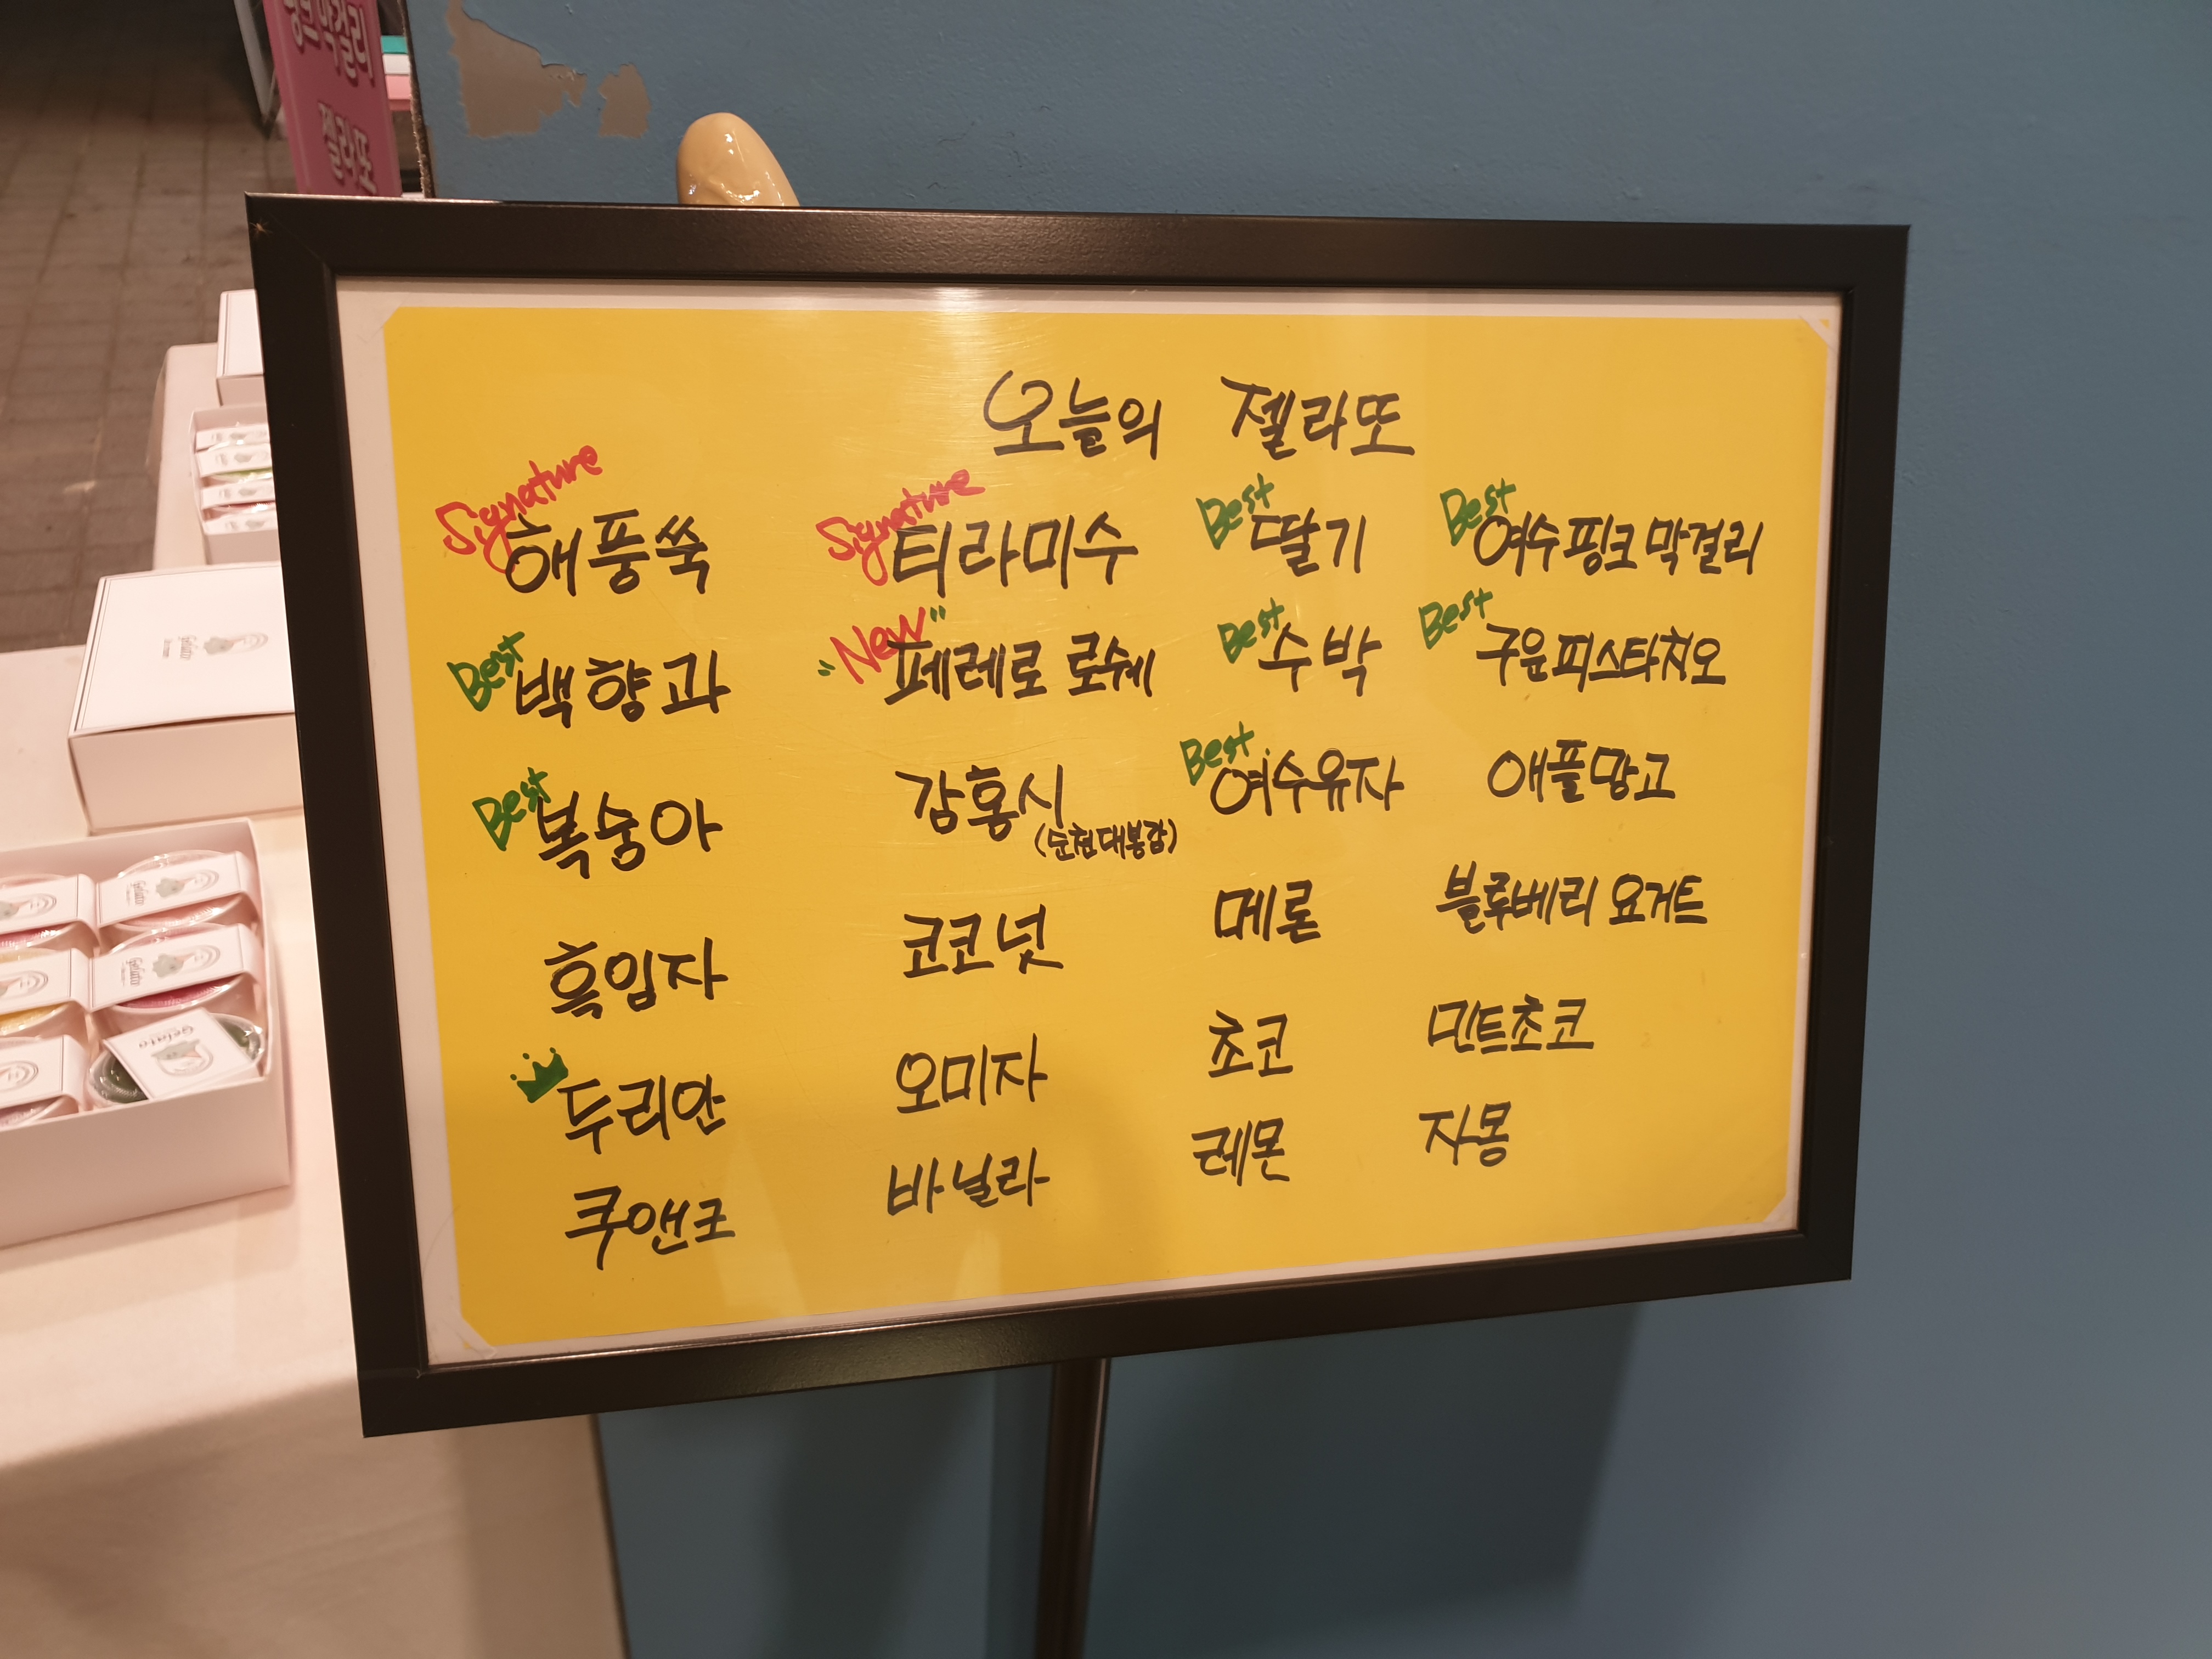 막걸리
젤라또
오늘의 젤라또
Signature
해풍쑥
Signature
티라미수
Best
딸기
Best
여수핑크막걸리
Best
백향과
"New"
페레로 로쉐
Best
수박
Best
구운피스타치오
Best
복숭아
감홍시
(순천대봉감)
Best
여수유자
애플망고
흑임자
코코넛
메론
블루베리 요거트
두리안
오미자
초코
민트초코
쿠앤크
바닐라
레몬
자몽
Gelato
Gelato
Gelato
Gelato